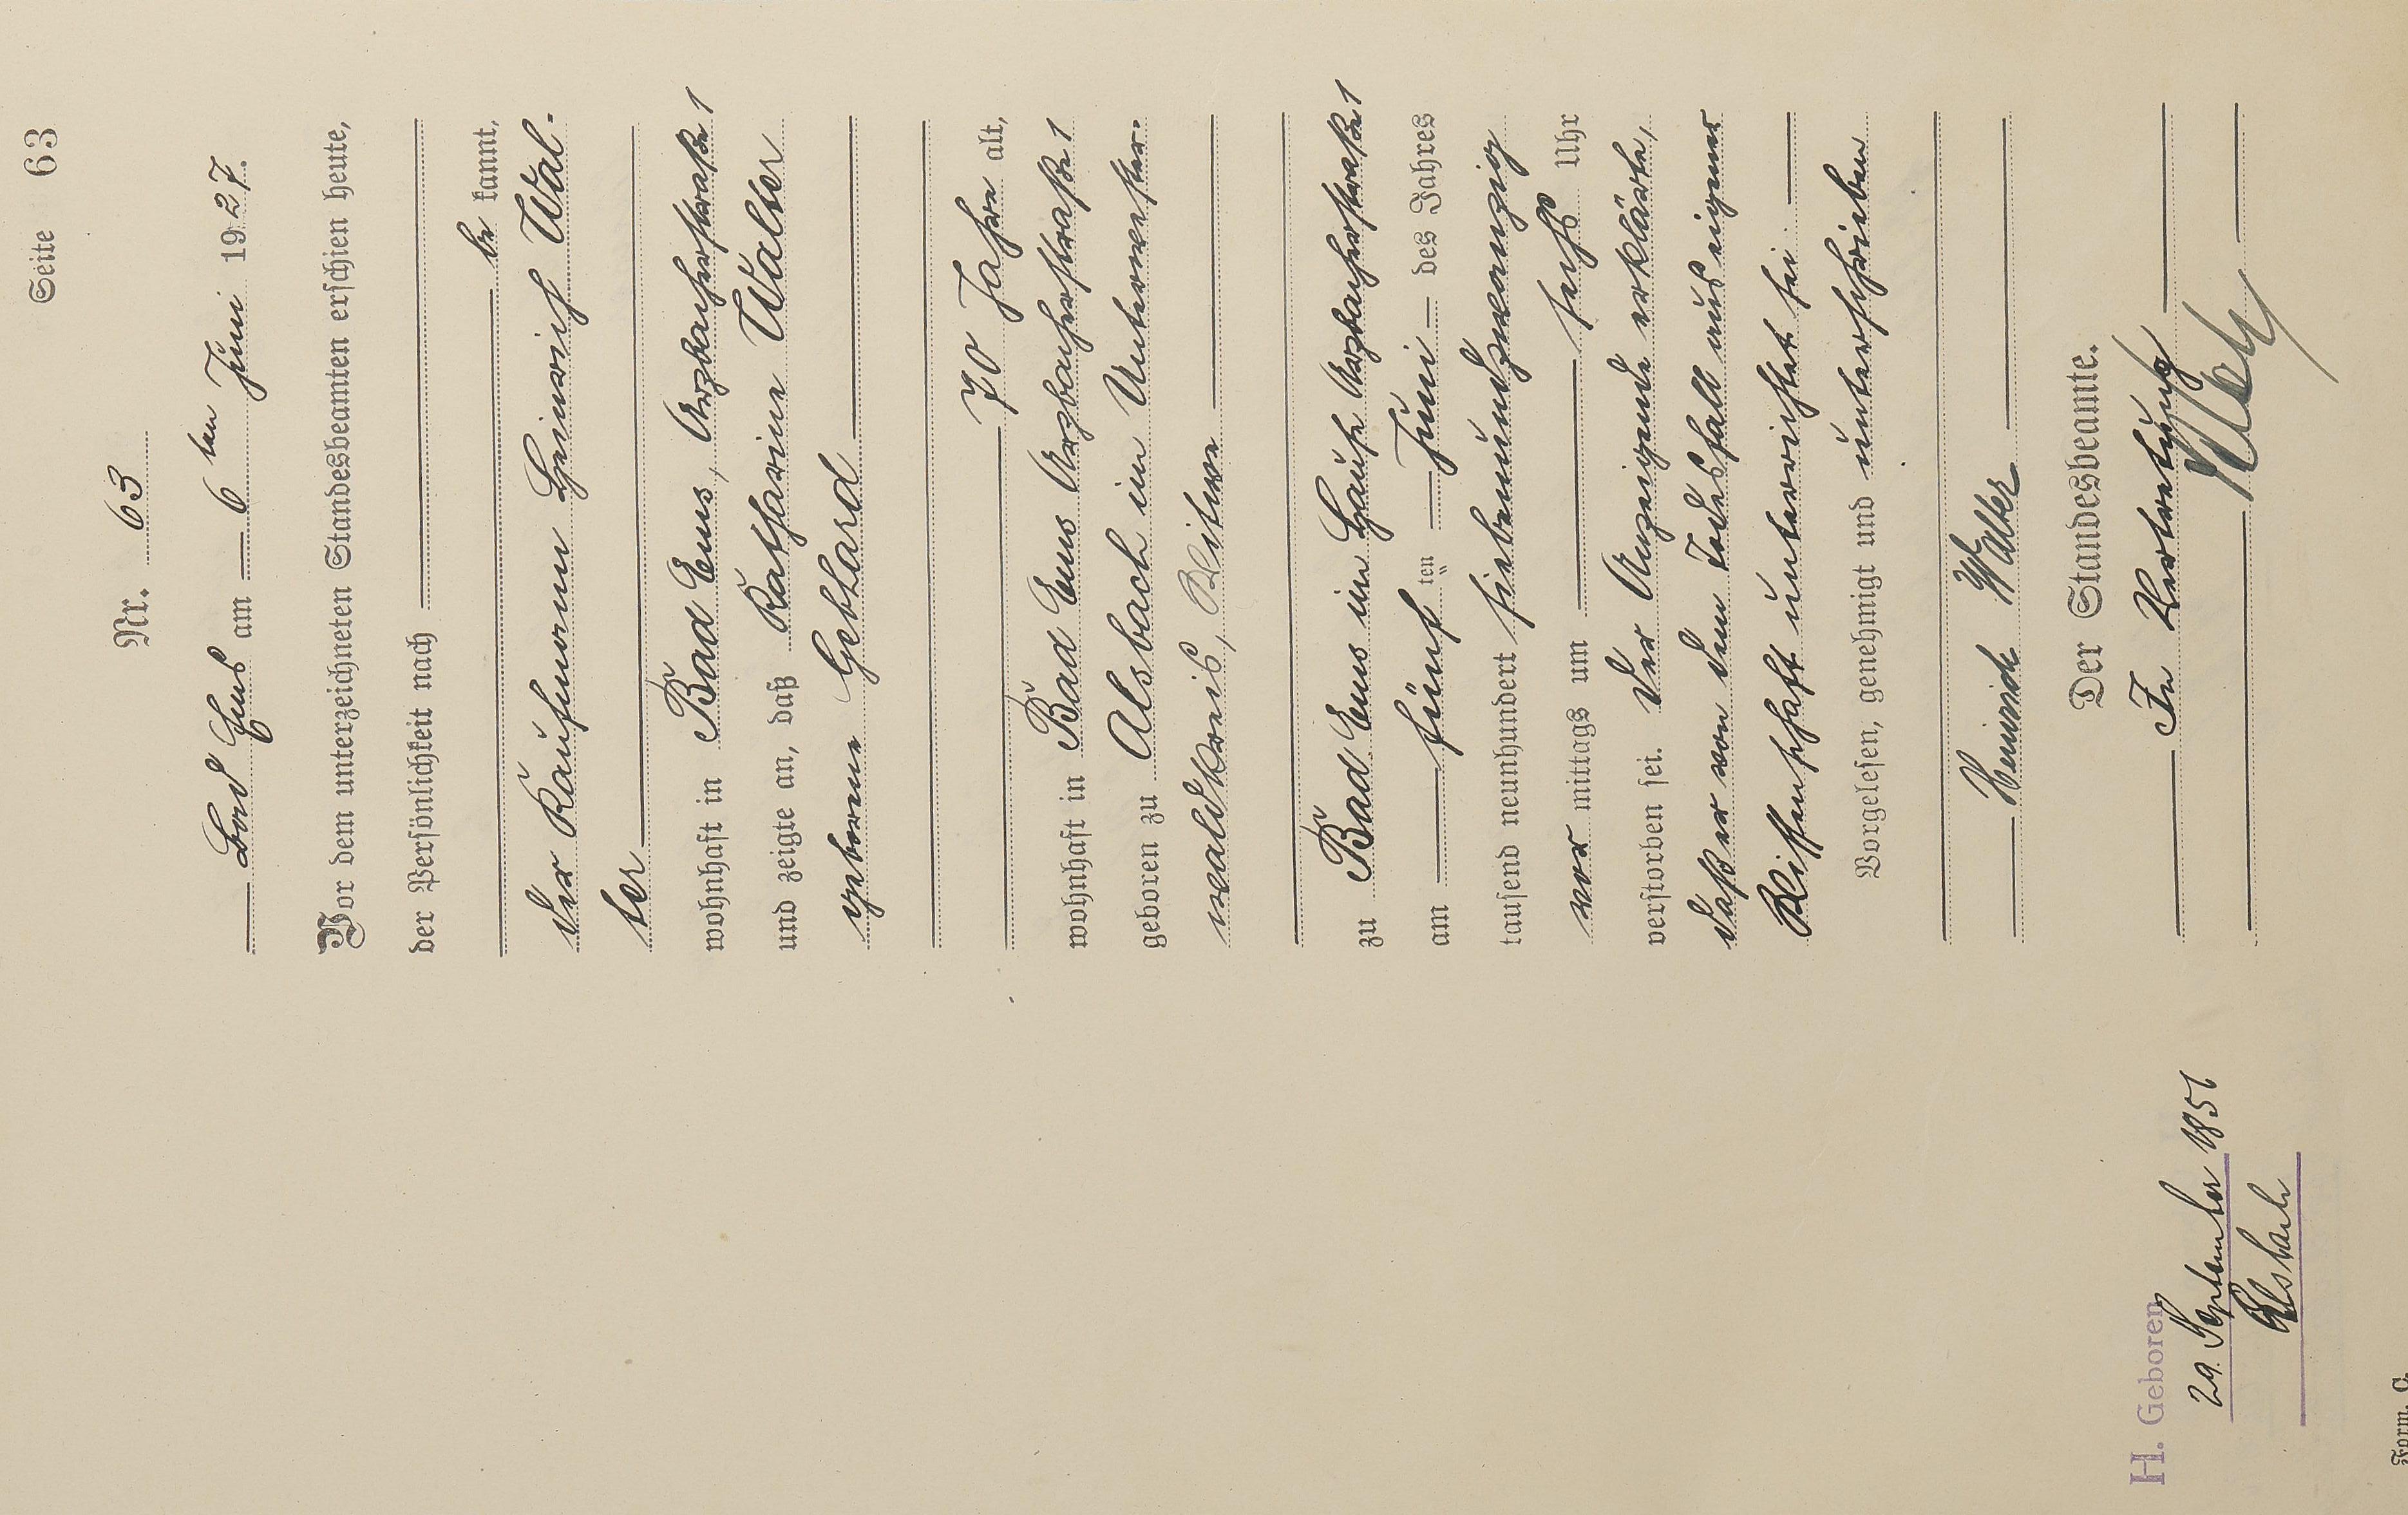 Seite 63
Nr. 63
Bad Ems am 6ten Juni 1927.
Vor dem unterzeichneten Standesbeamten erschien heute,
der Persönlichkeit nach
be kannt,
der Kaufmann Heinrich Wal-
ter
wohnhaft in Bad Ems, Arzbacherstraße 1
und zeigte an, daß Katharine Walter
geborene Gebhard
70 Jahre alt,
wohnhaft in Bad Ems Arzbacherstraße 1
geboren zu Alsbach im Unterwester-
waldkreis, Witwe
zu Bad Ems im Hause Arzbacherstraße 1
am fünf ten Juni des Jahres
tausend neunhundert siebenundzwanzig
vor mittags um sechs Uhr
verstorben sei. Der Anzeigende erklärte,
daß er von dem Todesfall aus eigener
Wissenschaft unterrichtet sei
Vorgelesen, genehmigt und unterschrieben
Heinrich Walter
Der Standesbeamte.
In Vertretung
H. Geboren
29. September 1856
Alsbach
Form. C.